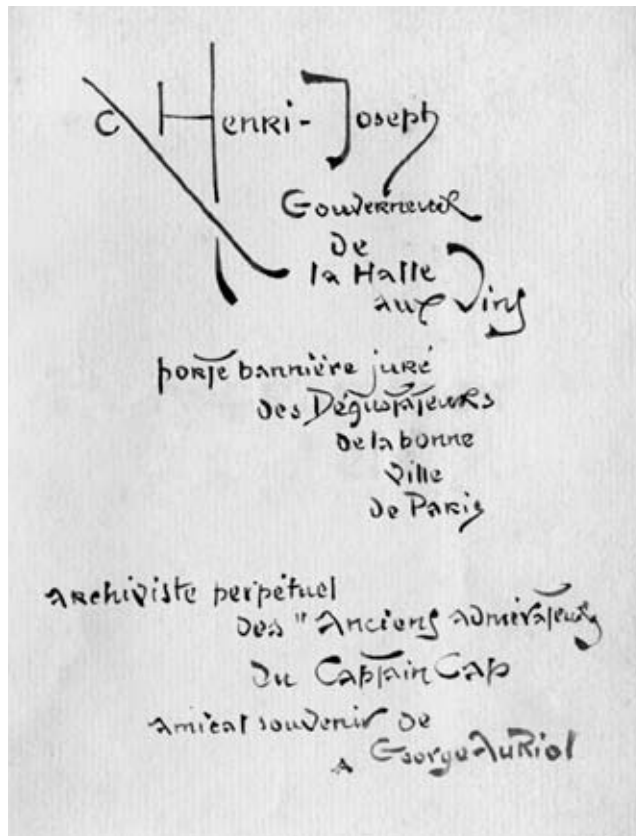 C Henri-Joseph
Gouverneur
de
la Halle
aux Vins
porte bannière juré
des Dégustateurs
de la bonne
Ville
de Paris
archiviste perpétuel
des "Anciens admirateurs
du Captain Cap
amical souvenir de
A George Auriol